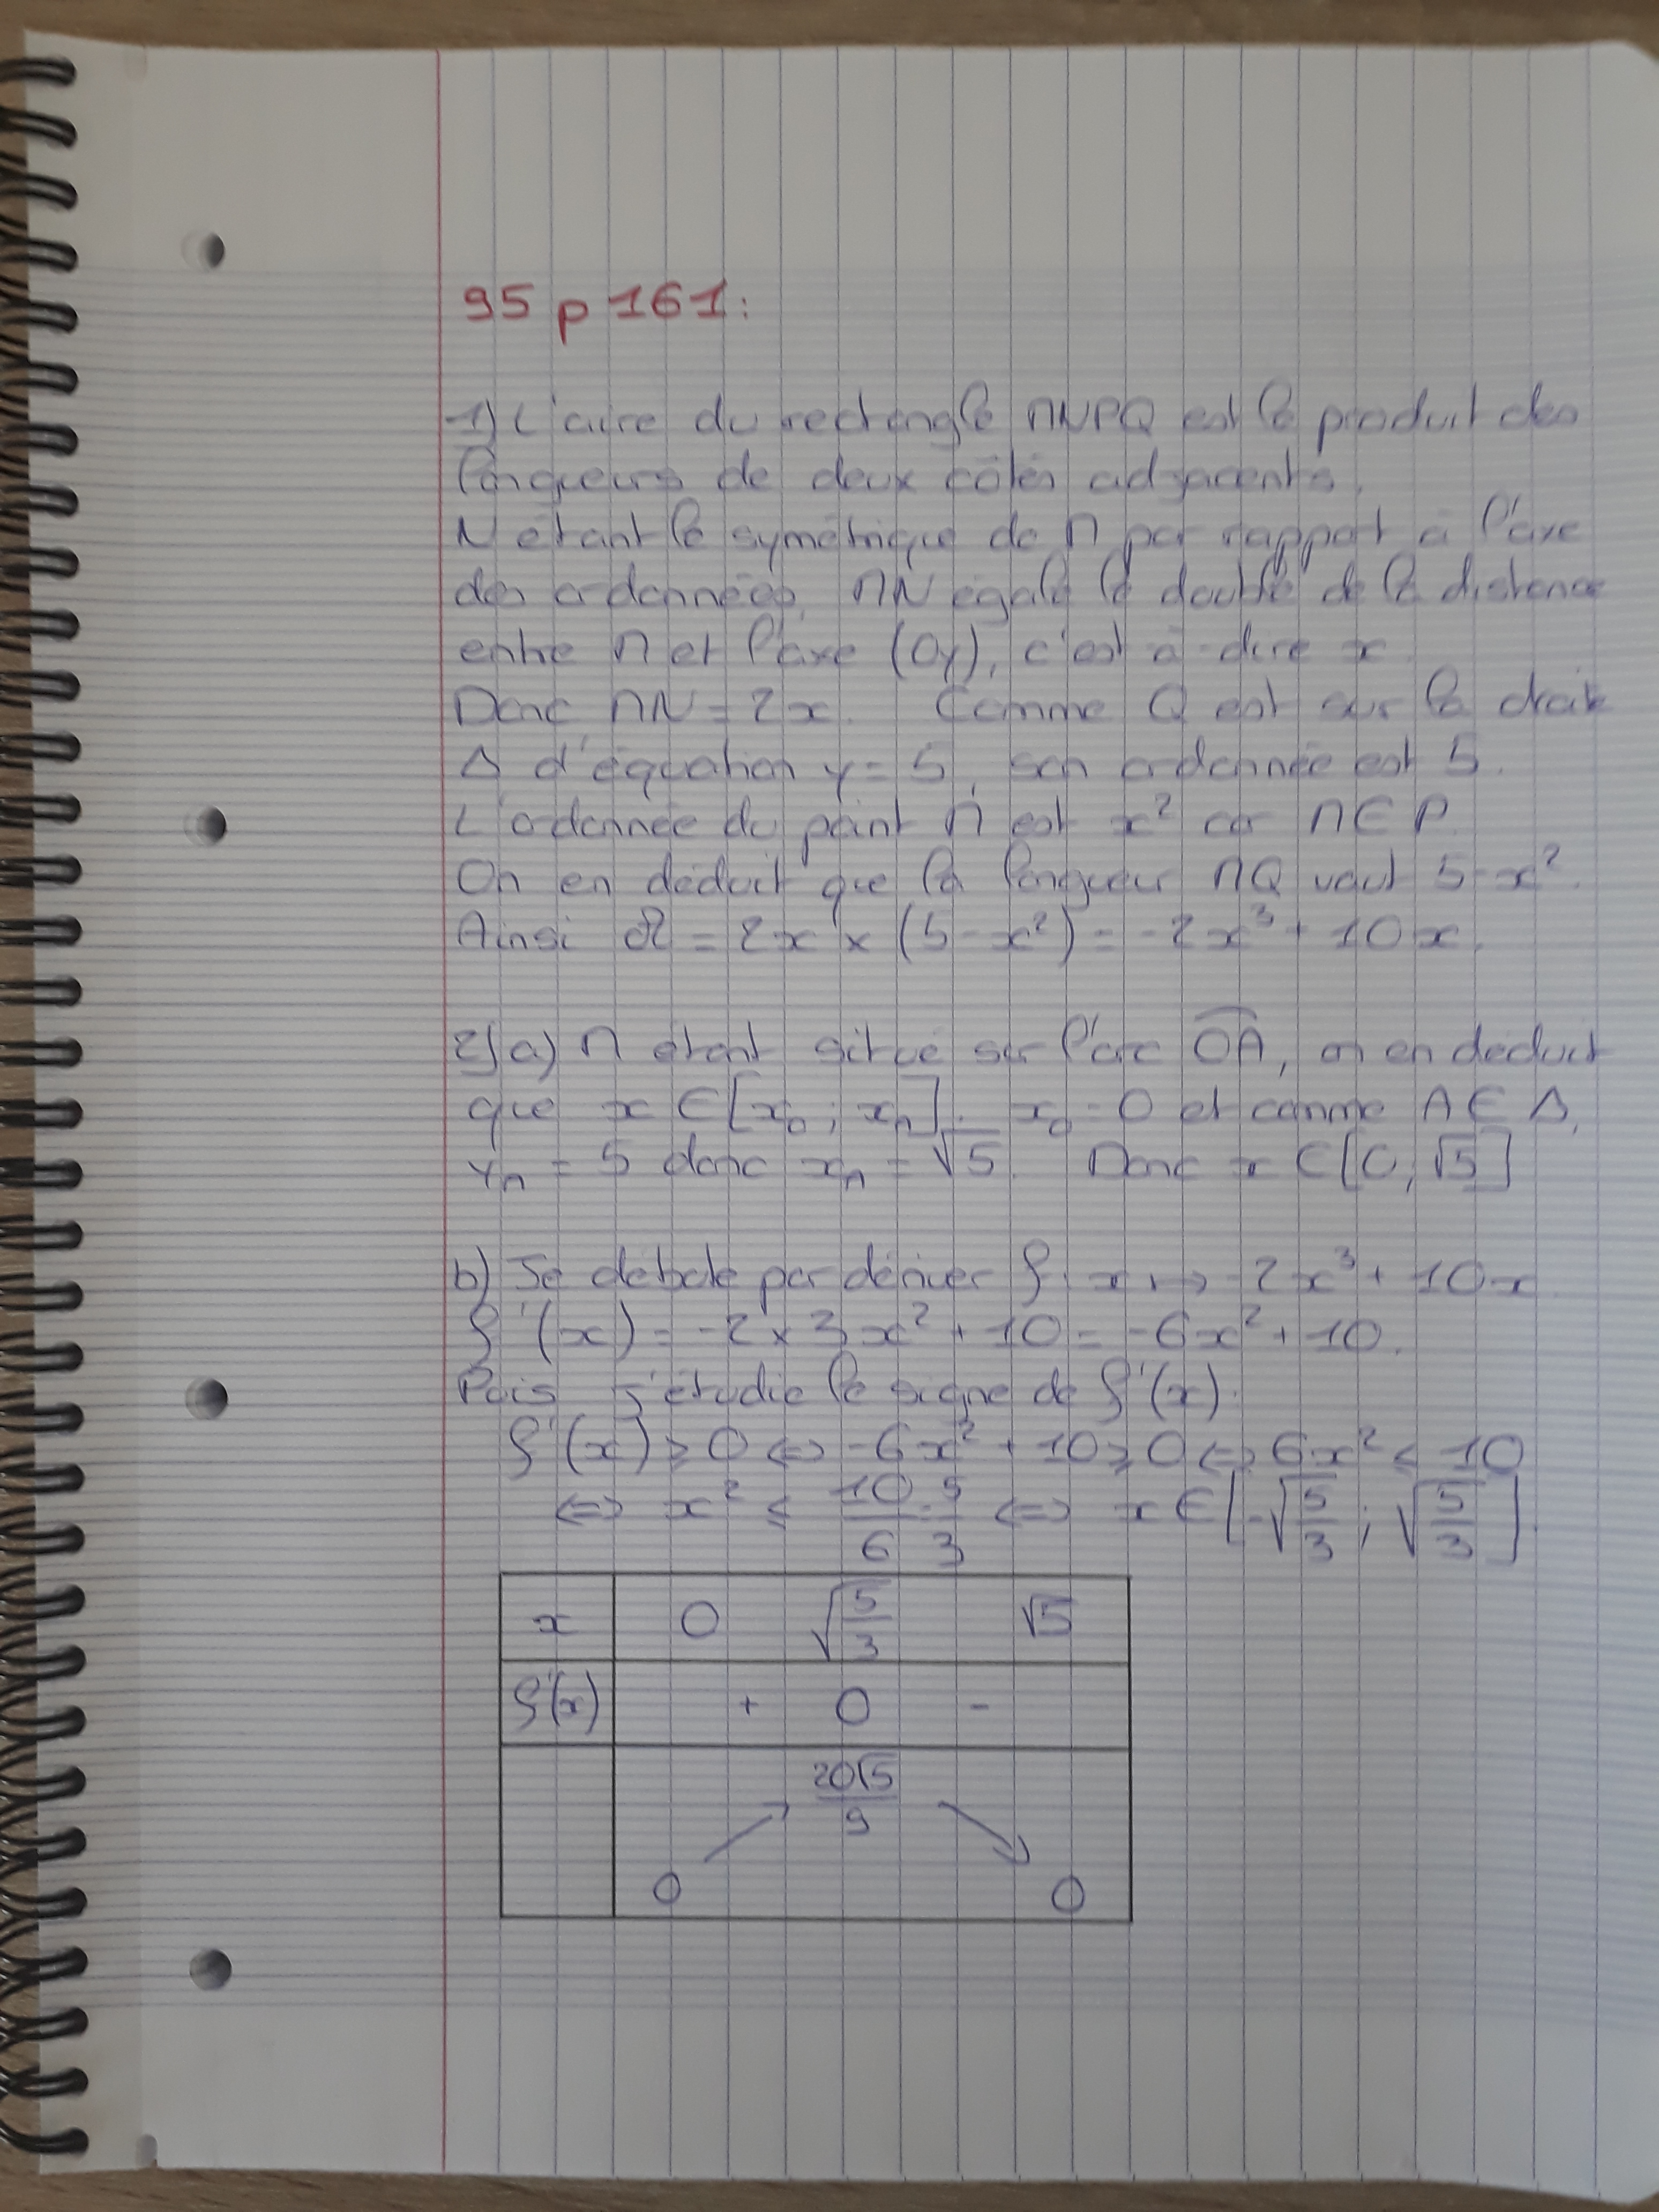 95 p 161:
1) L'aire du rectangle MNPQ est le produit des
longueurs de deux côtés adjacents.
N étant le symétrique de M par rapport à l'axe
des ordonnées, MN égale le double de la distance
entre M et l'axe (Oy), c'est-à-dire x.
Donc MN = 2x. Comme Q est sur la droite
Δ d'équation y = 5, son ordonnée est 5.
L'ordonnée du point M est x² car M ∈ P.
On en déduit que la longueur MQ vaut 5 - x².
Ainsi A = 2x × (5 - x²) = -2x³ + 10x.
2) a) M étant situé sur l'arc OA, on en déduit
que x ∈ [x₀ ; x_A]. x₀ = 0 et comme A ∈ Δ,
y_A = 5 donc x_A = √5. Donc x ∈ [0 ; √5]
b) Je débute par dériver f : x ↦ -2x³ + 10x
f'(x) = -2 × 3x² + 10 = -6x² + 10.
Puis j'étudie le signe de f'(x).
f'(x) ≥ 0 ⇔ -6x² + 10 ≥ 0 ⇔ 6x² ≤ 10
⇔ x² ≤ 10/6 = 5/3 ⇔ x ∈ [-√(5/3) ; √(5/3)].
x 0 √(5/3) √5
f'(x) + 0 -
20√15/9
0 0